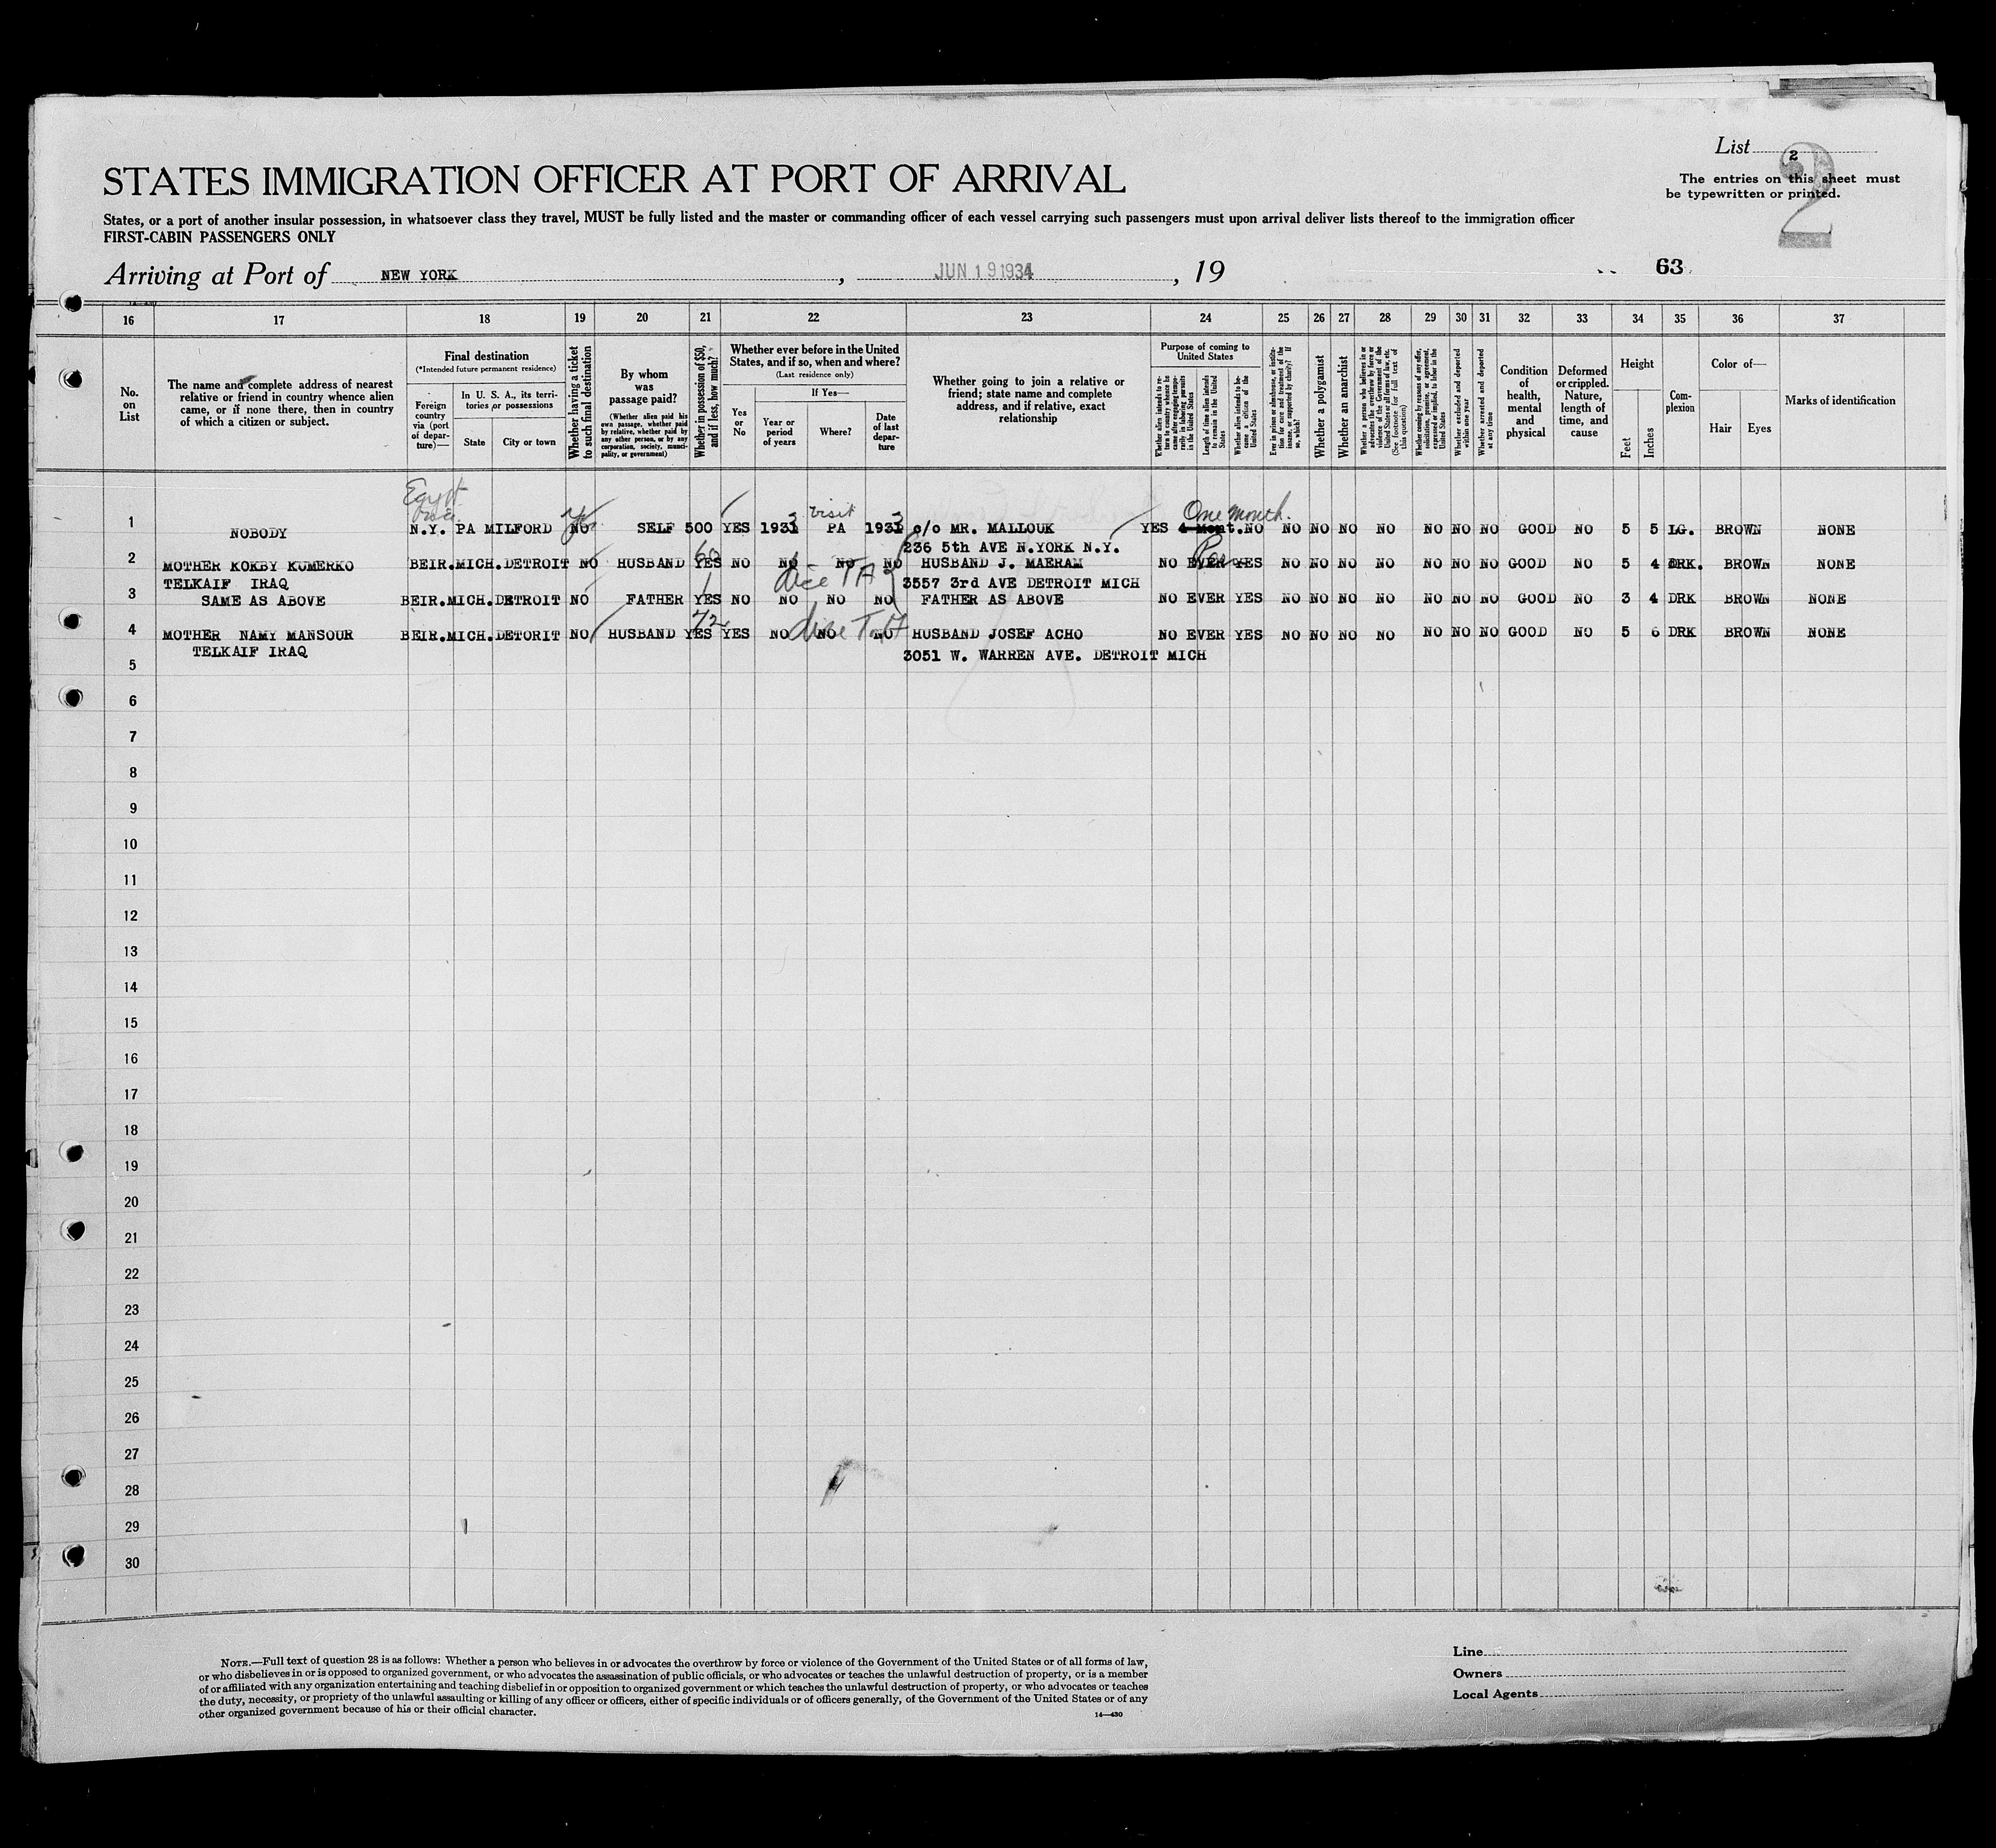 List 2
2
STATES IMMIGRATION OFFICER AT PORT OF ARRIVAL
The entries on this sheet must
be typewritten or printed.
States, or a port of another insular possession, in whatsoever class they travel, MUST be fully listed and the master or commanding officer of each vessel carrying such passengers must upon arrival deliver lists thereof to the immigration officer
FIRST-CABIN PASSENGERS ONLY
Arriving at Port of NEW YORK , JUN 19 1934 , 19
63
16 17 18 19 20 21 22 23 24 25 26 27 28 29 30 31 32 33 34 35 36 37
No. on List
The name and complete address of nearest relative or friend in country whence alien came, or if none there, then in country of which a citizen or subject.
Final destination
(*Intended future permanent residence)
Foreign country via (port of departure)—
In U. S. A., its territories or possessions
State
City or town
Whether having a ticket to such final destination
By whom was passage paid?
(Whether alien paid his own passage, whether paid by relative, whether paid by any other person, or by any corporation, society, municipality, or government)
Whether in possession of $50, and if less, how much?
Whether ever before in the United States, and if so, when and where?
(Last residence only)
Yes or No
If Yes—
Year or period of years
Where?
Date of last departure
Whether going to join a relative or friend; state name and complete address, and if relative, exact relationship
Purpose of coming to United States
Whether alien intends to return to country whence he came after engaging temporarily in laboring pursuits in the United States
Length of time alien intends to remain in the United States
Whether alien intends to become a citizen of the United States
Ever in prison or almshouse, or institution for care and treatment of the insane, or supported by charity? If so, which?
Whether a polygamist
Whether an anarchist
Whether a person who believes in or advocates the overthrow by force or violence of the Government of the United States or all forms of law, etc. (See footnote for full text of this question)
Whether coming by reason of any offer, solicitation, promise, or agreement, expressed or implied, to labor in the United States
Whether excluded and deported within one year
Whether arrested and deported at any time
Condition of health, mental and physical
Deformed or crippled. Nature, length of time, and cause
Height
Feet
Inches
Complexion
Color of—
Hair
Eyes
Marks of identification
Egypt
visit
One month.
1 NOBODY N.Y. PA MILFORD NO SELF 500 YES 1931 PA 1931 c/o MR. MALLOUK YES 4 Mont. NO NO NO NO NO NO NO NO GOOD NO 5 5 LG. BROWN NONE
236 5th AVE N.YORK N.Y.
60
2 MOTHER KOKBY KUMERKO BEIR. MICH. DETROIT NO HUSBAND YES NO NO NO NO HUSBAND J. MAERAM NO EVER YES NO NO NO NO NO NO NO GOOD NO 5 4 DRK. BROWN NONE
TELKAIF IRAQ 3557 3rd AVE DETROIT MICH
3 SAME AS ABOVE BEIR. MICH. DETROIT NO FATHER YES NO NO NO NO FATHER AS ABOVE NO EVER YES NO NO NO NO NO NO NO GOOD NO 3 4 DRK BROWN NONE
72
4 MOTHER NAMY MANSOUR BEIR. MICH. DETORIT NO HUSBAND YES YES NO NO NO HUSBAND JOSEF ACHO NO EVER YES NO NO NO NO NO NO NO GOOD NO 5 6 DRK BROWN NONE
TELKAIF IRAQ 3051 W. WARREN AVE. DETROIT MICH
5
6
7
8
9
10
11
12
13
14
15
16
17
18
19
20
21
22
23
24
25
26
27
28
29
30
NOTE.—Full text of question 28 is as follows: Whether a person who believes in or advocates the overthrow by force or violence of the Government of the United States or of all forms of law,
or who disbelieves in or is opposed to organized government, or who advocates the assassination of public officials, or who advocates or teaches the unlawful destruction of property, or is a member
of or affiliated with any organization entertaining and teaching disbelief in or opposition to organized government or which teaches the unlawful destruction of property, or who advocates or teaches
the duty, necessity, or propriety of the unlawful assaulting or killing of any officer or officers, either of specific individuals or of officers generally, of the Government of the United States or of any
other organized government because of his or their official character.
14—430
Line
Owners
Local Agents